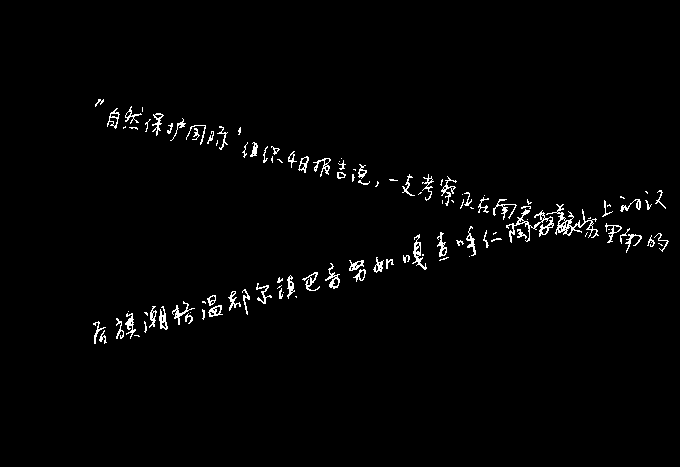 "自然保护国际"组织4日报告说,一支考察队在南上的议
后旗潮格温都尔镇巴音努如嘎查呼仁陶家里南的